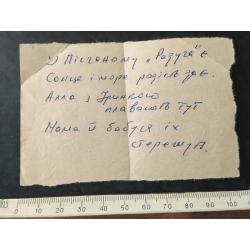 2) Пісчаному „Радуга" є.
Сонце і море радість дає.
Алла з Іринкою
плавають тут
Мама й бабуся їх
стережуть.
0 10 20 30 40 50 60 70 80 90 100